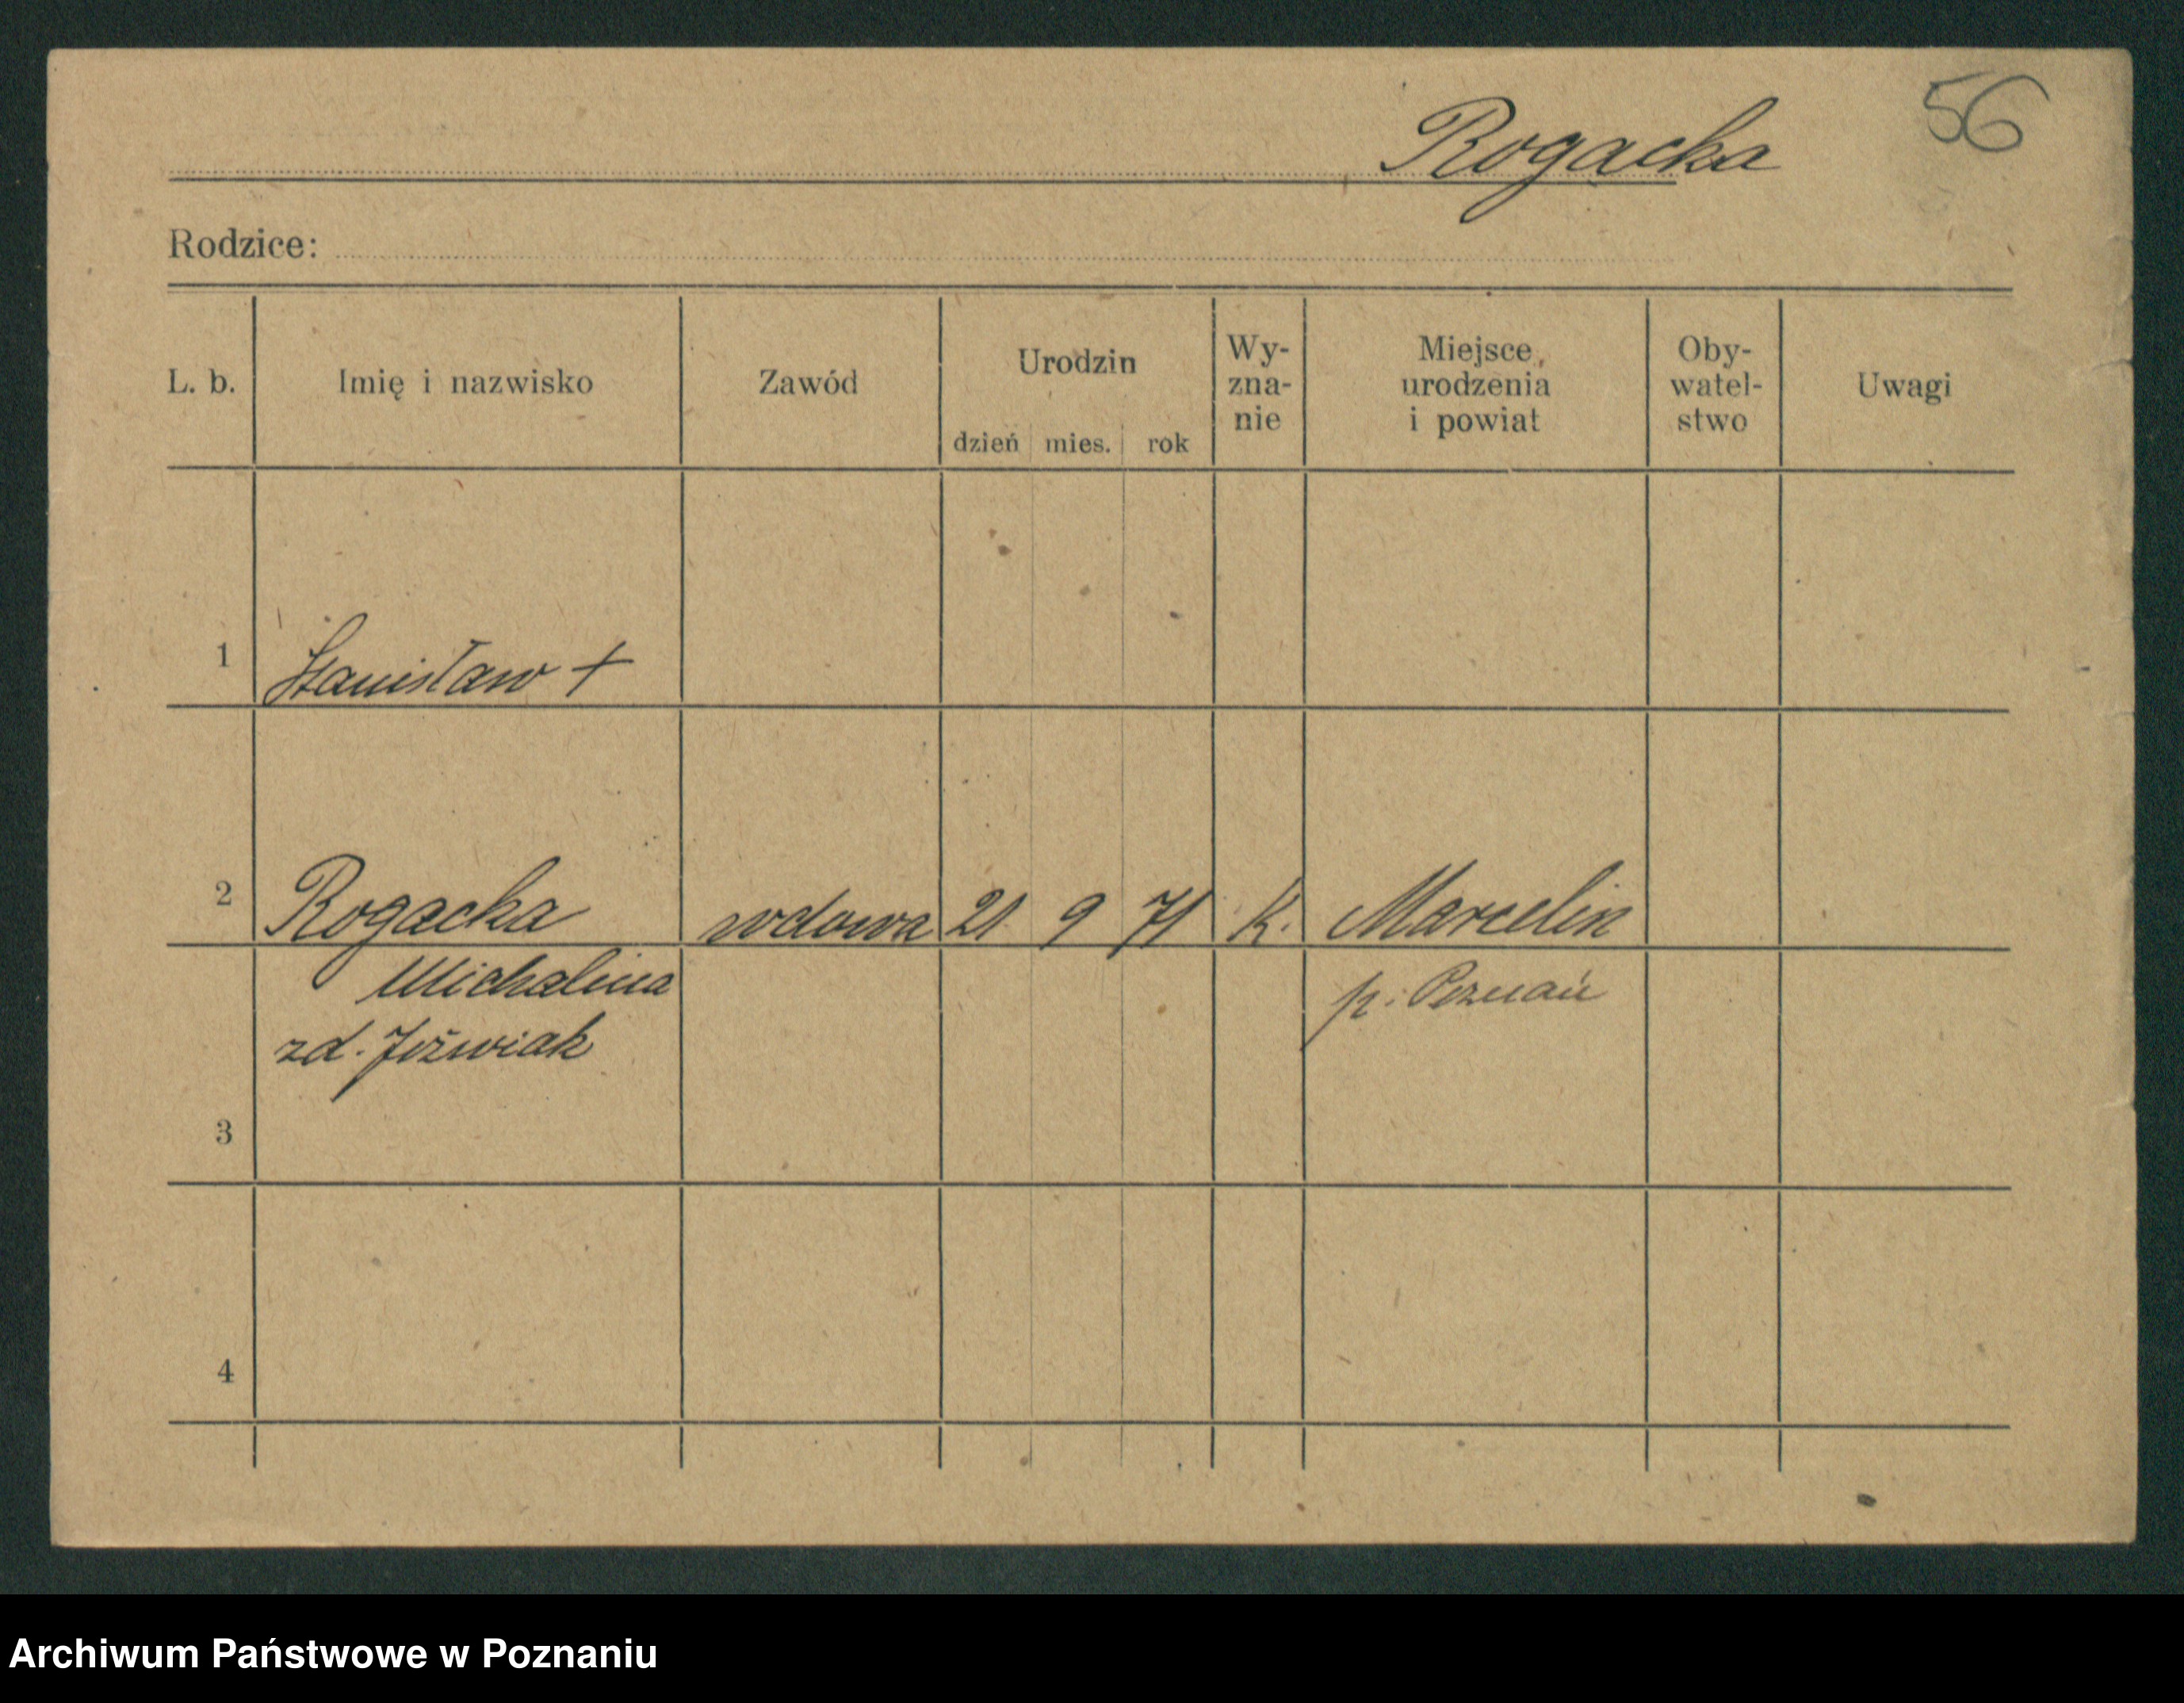 56
Rogacka
Rodzice:
L. b. Imię i nazwisko Zawód Urodzin dzień mies. rok Wy- zna- nie Miejsce urodzenia i powiat Oby- watel- stwo Uwagi
1 Stanisław +
2 Rogacka wdowa 21 9 71 K. Marcelin
Michalina p. Poznań
zd. Jóźwiak
3
4
Archiwum Państwowe w Poznaniu